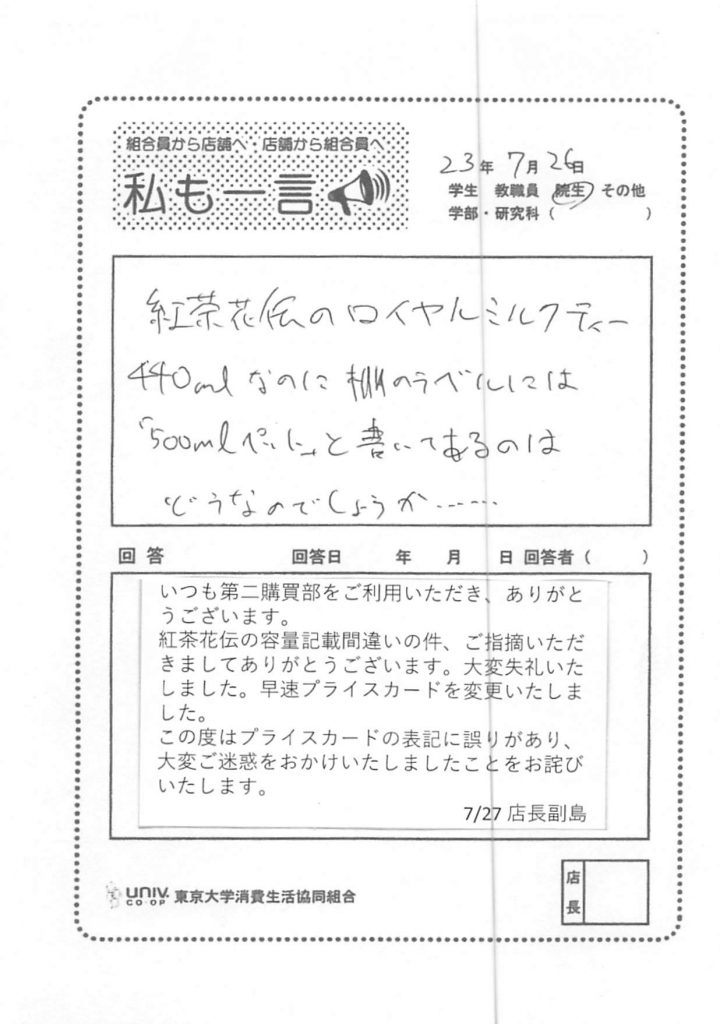 組合員から店舗へ・店舗から組合員へ
私も一言
23年7月26日
学生 教職員 院生 その他
学部・研究科（ ）
紅茶花伝のロイヤルミルクティー
440mlなのに棚のラベルには
「500mlペット」と書いてあるのは
どうなのでしょうか……
回答 回答日 年 月 日 回答者（ ）
いつも第二購買部をご利用いただき、ありがと
うございます。
紅茶花伝の容量記載間違いの件、ご指摘いただ
きましてありがとうございます。大変失礼いた
しました。早速プライスカードを変更いたしま
した。
この度はプライスカードの表記に誤りがあり、
大変ご迷惑をおかけいたしましたことをお詫び
いたします。
7/27 店長副島
UNIV. CO-OP 東京大学消費生活協同組合
店長